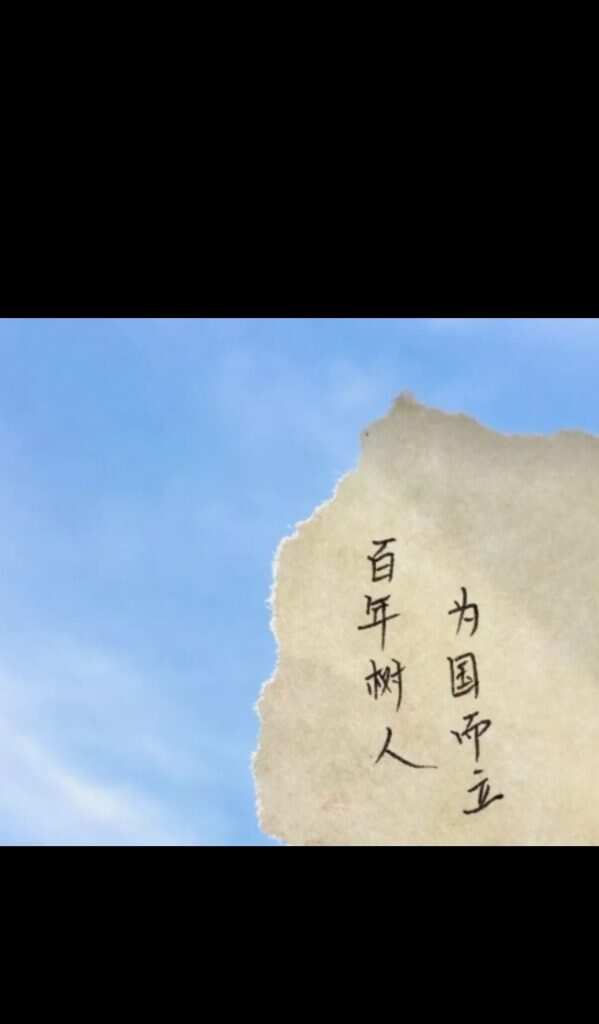 百年树人
为国而立